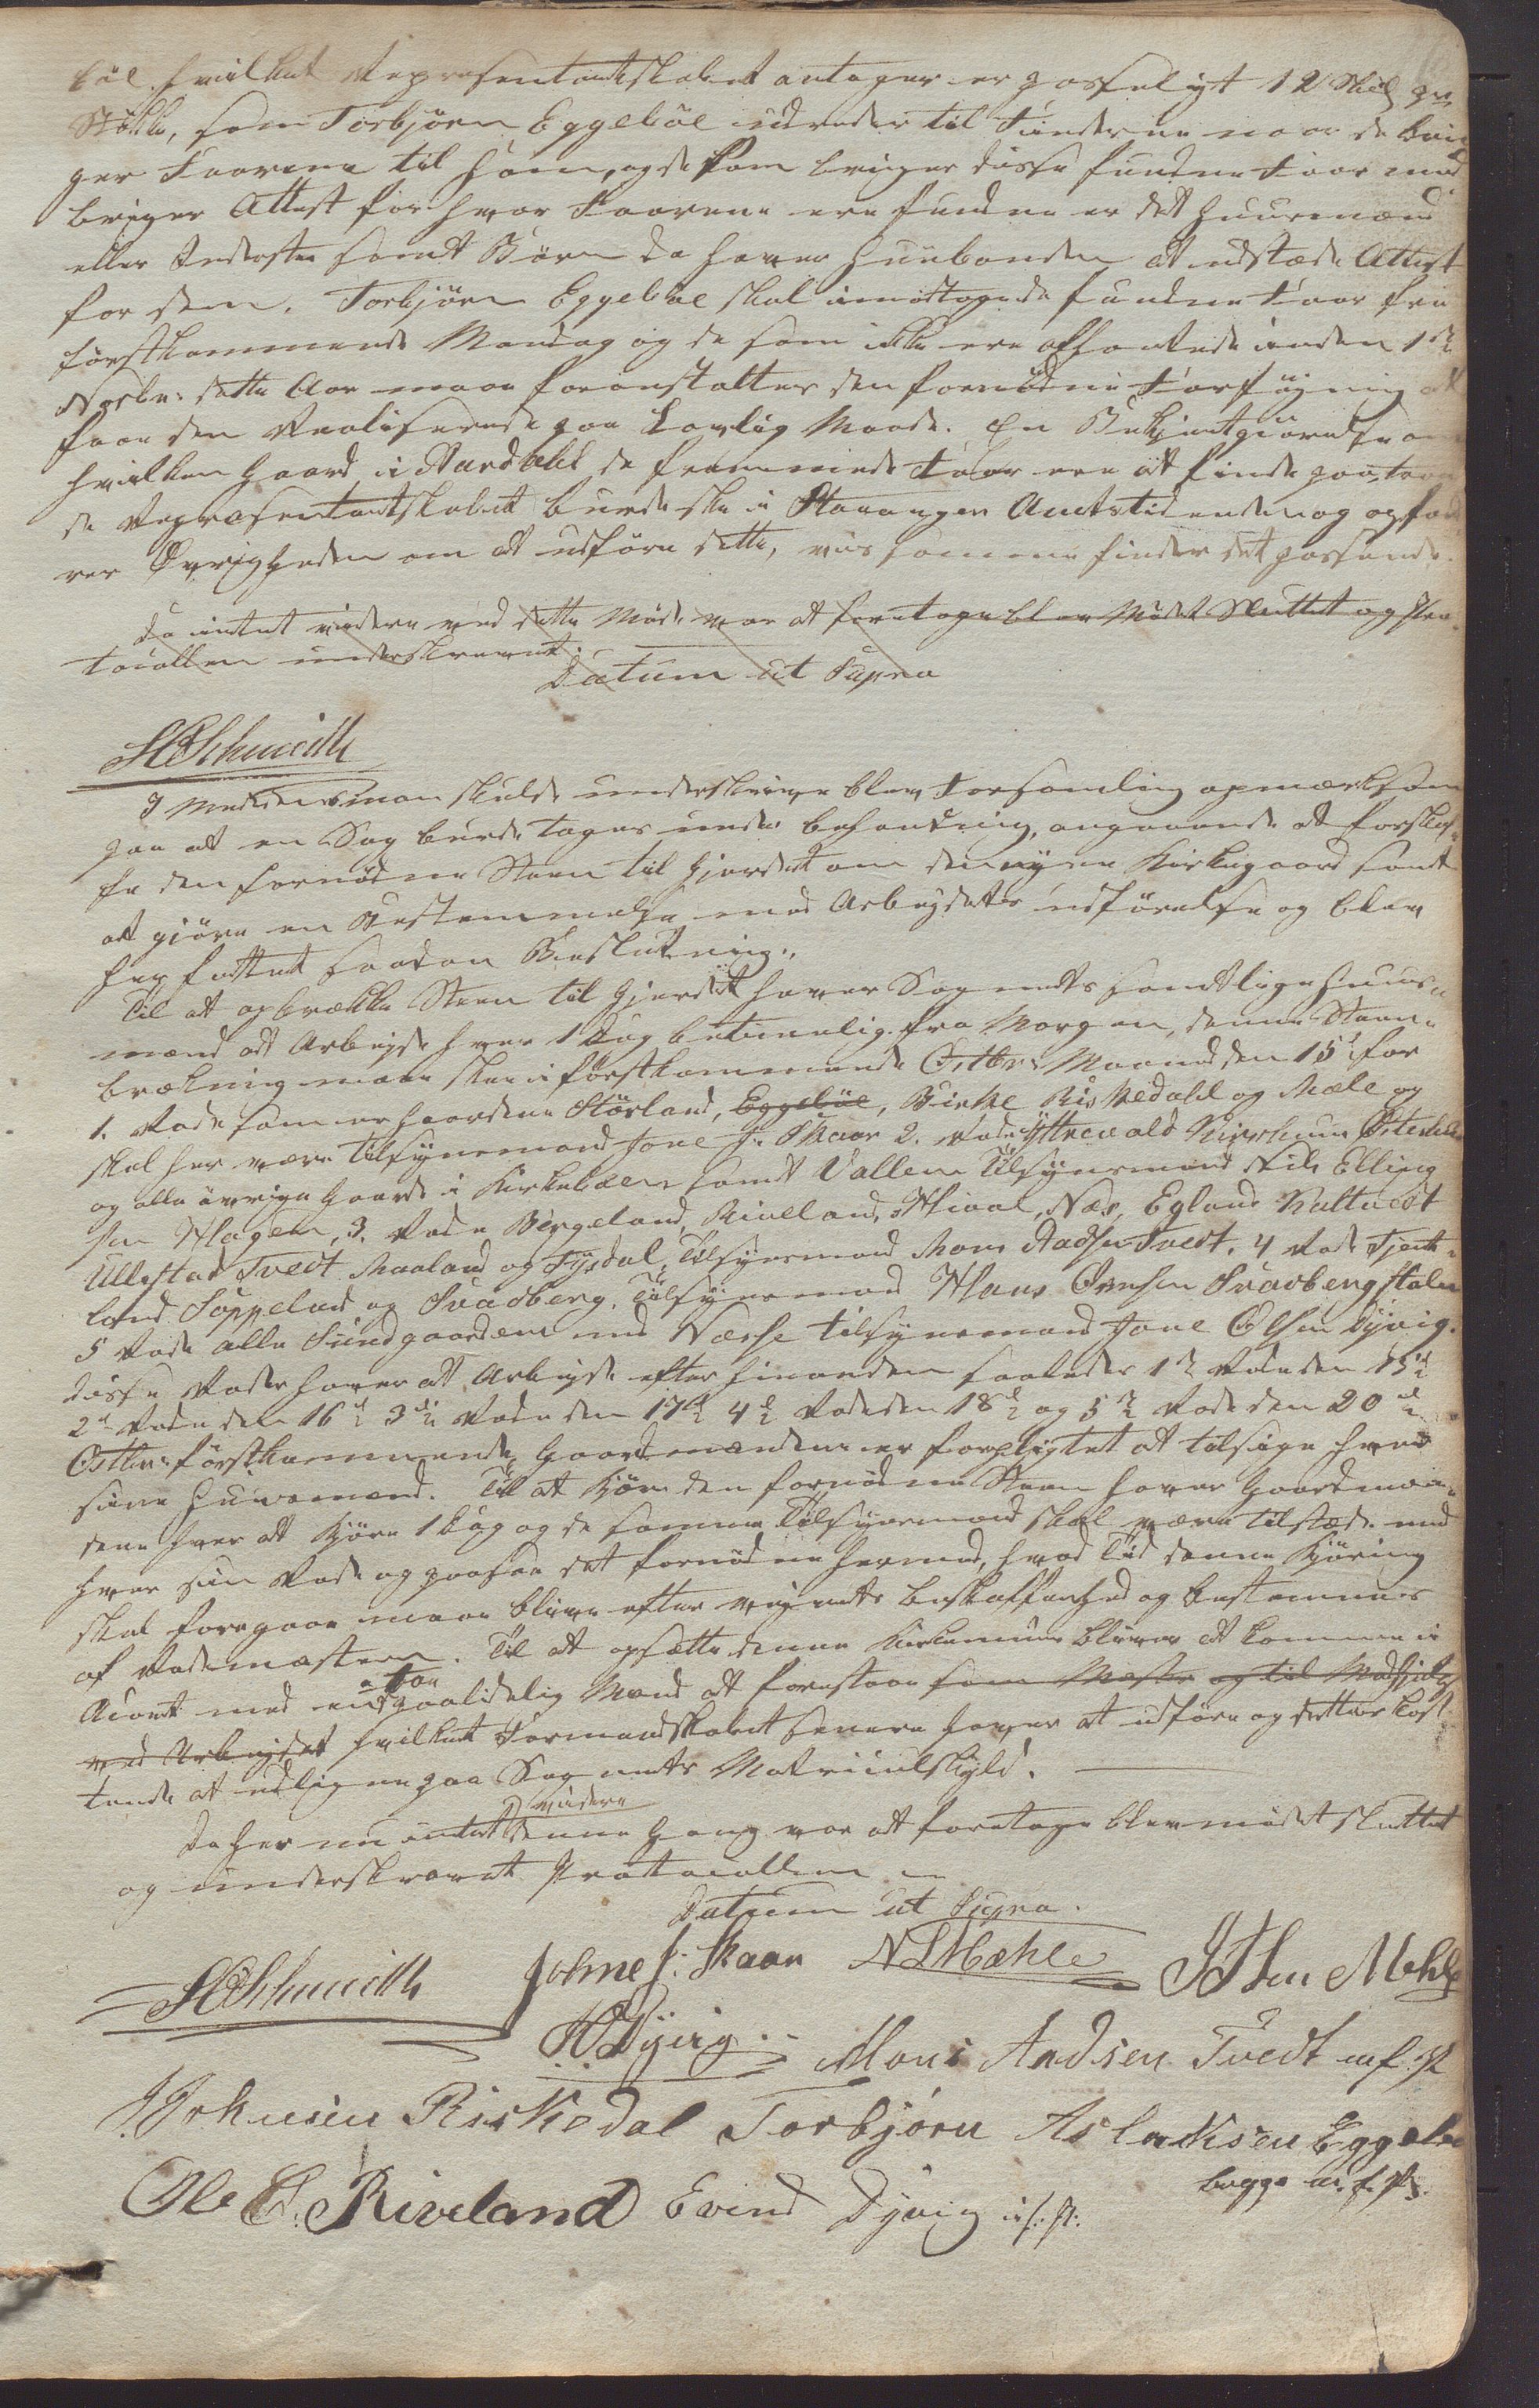 bøe hvilket Repræsentantskabet antager er passeligt 12 Skill pr
Stökke, som Torbjørn Eggebøe udreder til Finderne naar de brin
ger Faarene til ham, og de som bringer disse fundne Faar med
bringer Attest for hvor Faarene ere fundne er det Huusmænd
eller Inderster samt Börn da haver Huusbonden at udstæde Attest
for dem. Torbjörn Eggeböe skal imodtage de fundne Faar fra
förstkommende Mandag og de som ikke ere afhentede inden 1ste
Novbr: dette Aar maae foranstaltes den fornödne Forföyning at
faae dem Realiserede paa Lovlig Maade. En Bekjentgiörelse om
hvilken Gaard i Aardahl de fremmede Faar ere at finde paa, troe
de Repræsentantskabet burde skee i Stavanger Amtstidende og opfor
rer Övrigheden om at udföre dette, vis samme finder det passende.
Da intet videre ved dette Möde var at foretage blev Mödet Sluttet og Pro
tocollen underskrevet.
Datum ut Supra
HCSchmidth
I Medens man skulde underskrive blev Forsamling opmærksom
paa at en Sag burde tages under behandling, angaaende at forskaf
fe den fornödne Steen til Gjerdet om den nye Kirkegaard samt
at giöre en Bestemmelse med Arbeydets udförelse og blev
her fattet saadan Beslutning.
Til at opbrække Steen til Gjerdet haver Sognets samtlige Huus
mænd at Arbeyde hver 1 Dag betimelig fra Morgen, denne Steen
brækning maae skee i förstkommende Octbr: Maaned den 15de for
1. Rode som er Gaardene Störland, Eggeböe, Virke Riskedahl og Mæle og
skal her være tilsynsmand Jone J. Skaar 2. Rode
og alle övrige Gaarde i Kirkeböen samt Vallem Tilsynsmand Nils Elling
sen Hagen, 3. Rode Bergeland, Riveland, Hiaal, Nes, Egland Kultvedt
Ullestad Tvedt Maaland og Fysdal, Tilsynsmand Mons Andsen Tvedt. 4 Rode Tjent
land Soppeland og Svadberg, Tilsynsmand Hans Svadberg
5 Rode alle Sundgaardene med Næsse tilsynsmand Jone Olsen Dyvig.
disse Roder haver at Arbeyde efter hinanden saaledes 1ste Rode den 15de
2de Rode den 16de 3die Rode den 17de 4de Rode den 18de og 5te Rode den 20de
Octbr: förstkommende, Gaardmændene er forpligtet at tilsige hver
sine Huusmænd. Til at kjöre den fornödne Steen haver Gaardmæn
dene hver at kjöre 1 Dag og de samme Tilsynsmænd skal være tilstæde med
hver sin Rode og paasee det fornödne hermed, hvad Tid denne Kjöring
skal foregaae maae blive efter Veyrets beskaffenhed og bestemmes
af Rodemæsteren. Til at opsætte denne Kirkemuur bliver at komme i
Acort med en á toe paalidelig Mænd at forestaae som Mæster og til Medhjelp
ved Arbeydet hvilket Formandskabet senere haver at udföre og dettes kost
tende at udligne paa Sognets Matriculskyld.
Da her nu intet videre denne Gang var at foretage blev mödet sluttet
og underskrevet Protocollen
Datum ut Supra.
HCSchmidth Johne J: Skaar NLMæhle Mehle
Dyvig Mons Andsen Tvedt m f P
Johnsen Riskedal Torbjörn Aslaksen Eggebö
begge m. f. P.
Ole E. Riveland Evind Dyvig m f: P: